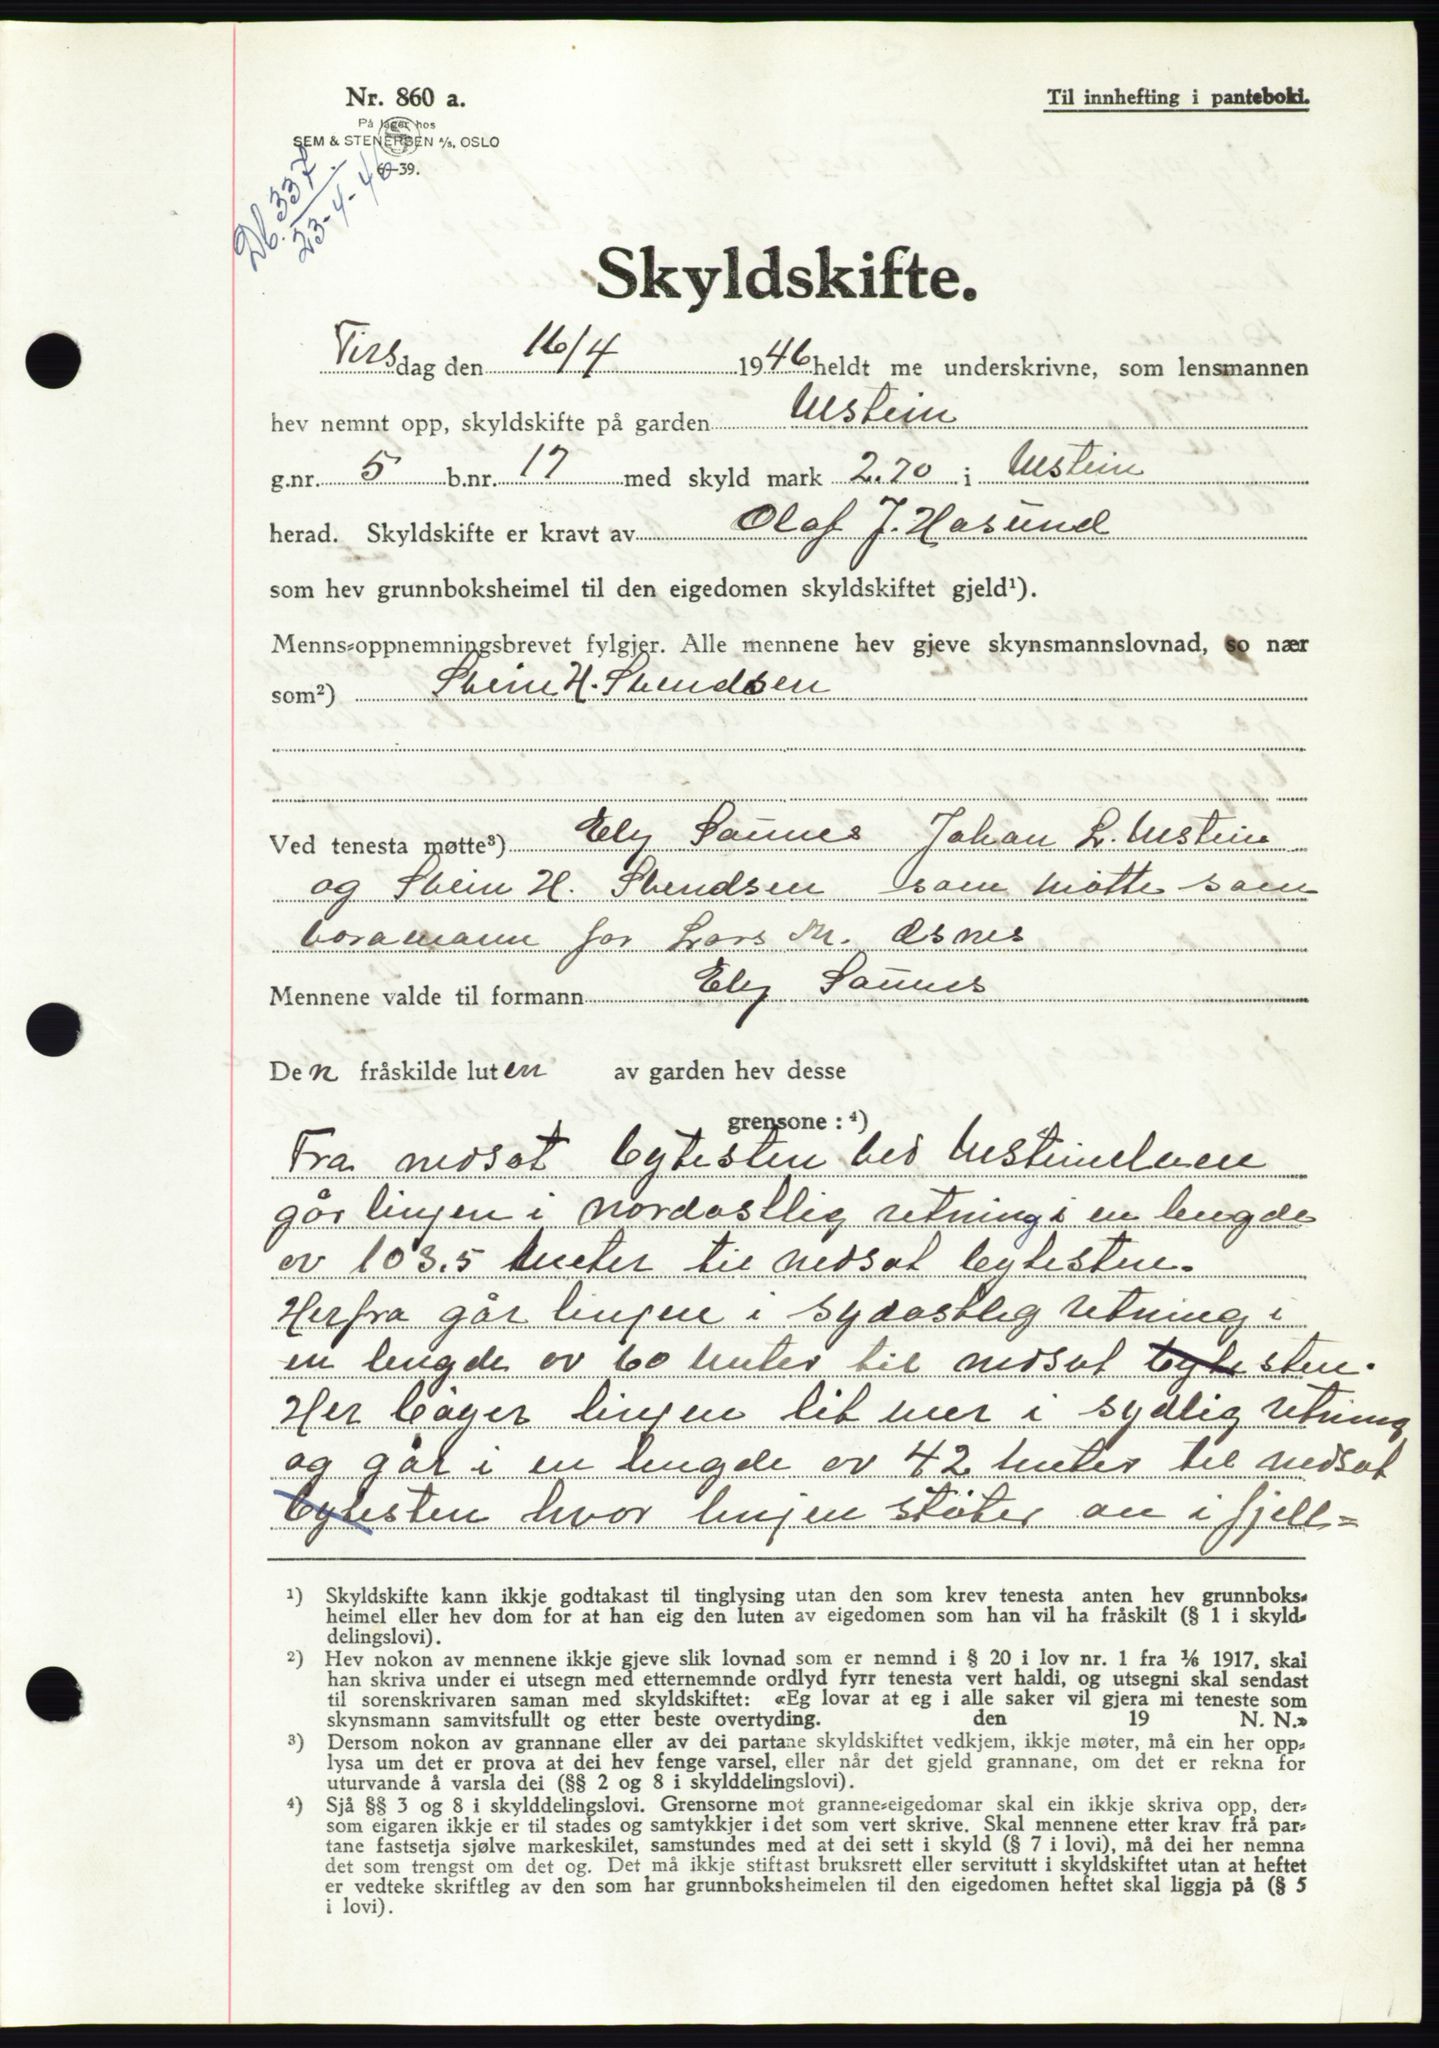 Nr. 860 a.
Til innhefting i panteboki.
På lager hos
SEM & STENERSEN A/S, OSLO
6-39.
Db. 337
23-4-46
Skyldskifte.
Tirsdag den 16/4 1946 heldt me underskrivne, som lensmannen
hev nemnt opp, skyldskifte på garden Ulstein
g.nr. 5 b.nr. 17 med skyld mark 2.70 i Ulstein
herad. Skyldskifte er kravt av Olaf J. Hasund
som hev grunnboksheimel til den eigedomen skyldskiftet gjeld¹).
Menns-oppnemningsbrevet fylgjer. Alle mennene hev gjeve skynsmannslovnad, so nær
som²) Svein H. Svendsen
Ved tenesta møtte³) Ely Saunes Johan L. Ulstein
og Svein H. Svendsen som møtte som
varamann for Lars M. Osnes
Mennene valde til formann Ely Saunes
Den fråskilde luten av garden hev desse
grensone : ⁴)
Fra nedsat bytesten ved Ulsteinelven
går linjen i nordostlig retning i en lengde
av 103.5 meter til nedsat bytesten.
Herfra går linjen i sydostleg retning i
en lengde av 60 meter til nedsat bytesten.
Her bøyer linjen lit mer i sydlig retning
og går i en lengde av 42 meter til nedsat
bytesten hvor linjen støter an i fjell=
¹) Skyldskifte kann ikkje godtakast til tinglysing utan den som krev tenesta anten hev grunnboks-
heimel eller hev dom for at han eig den luten av eigedomen som han vil ha fråskilt (§ 1 i skyld-
delingslovi).
²) Hev nokon av mennene ikkje gjeve slik lovnad som er nemnd i § 20 i lov nr. 1 fra 1/6 1917, skal
han skriva under ei utsegn med etternemnde ordlyd fyrr tenesta vert haldi, og utsegni skal sendast
til sorenskrivaren saman med skyldskiftet: «Eg lovar at eg i alle saker vil gjera mi teneste som
skynsmann samvitsfullt og etter beste overtyding. den 19 N. N.»
³) Dersom nokon av grannane eller av dei partane skyldskiftet vedkjem, ikkje møter, må ein her opp-
lysa um det er prova at dei hev fenge varsel, eller når det gjeld grannane, om det er rekna for
uturvande å varsla dei (§§ 2 og 8 i skylddelingslovi).
⁴) Sjå §§ 3 og 8 i skylddelingslovi. Grensorne mot granne-eigedomar skal ein ikkje skriva opp, der-
som eigaren ikkje er til stades og samtykkjer i det som vert skrive. Skal mennene etter krav frå par-
tane fastsetja sjølve markeskilet, samstundes med at dei sett i skyld (§ 7 i lovi), må dei her nemna
det som trengst om det og. Det må ikkje stiftast bruksrett eller servitutt i skyldskiftet utan at heftet
er vedteke skriftleg av den som har grunnboksheimelen til den eigedomen heftet skal liggja på (§ 5
i lovi).